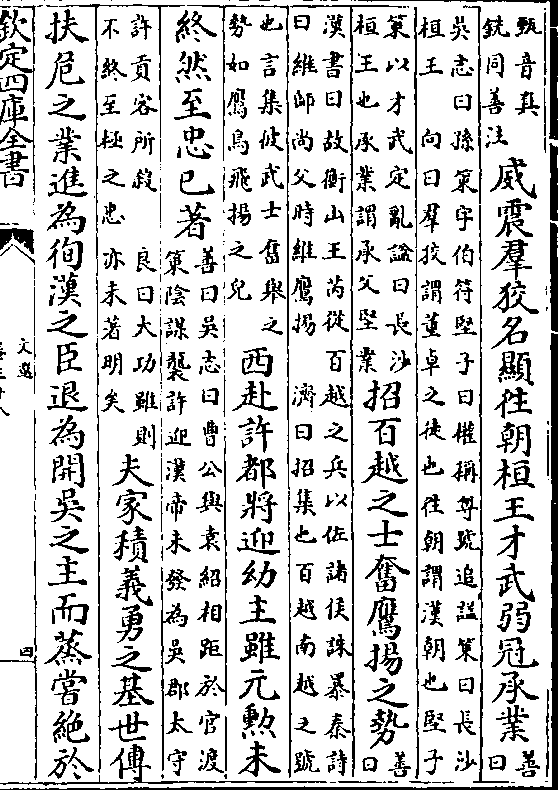 甄音真
銑同善注
威震羣狡名顯徃朝桓王才武弱冠承業
善
曰
吳志曰孫策字伯符堅子曰權稱尊號追諡策曰長沙
桓王 向曰羣狡謂董卓之徒也徃朝謂漢朝也堅子
策以才武定亂諡曰長沙
桓王也承業謂承父堅業
招百越之士奮鷹揚之勢
善
曰
漢書曰故衡山王芮從百越之兵以佐諸侯誅暴秦詩
曰維師尚父時維鷹揚 濟曰招集也百越南越之號
也言集彼武士奮舉之
勢如鷹鳥飛揚之皃
西赴許都將迎幼主雖元勲未
終然至忠已著
善曰吳志曰曹公與袁紹相距於官渡
策陰謀襲許迎漢帝未發為吳郡太守
許貢客所殺 良曰大功雖則
不終至極之忠 亦未著明矣
夫家積義勇之基世傳
扶危之業進為徇漢之臣退為開吳之主而蒸嘗絶於
欽定四庫全書
文選
卷三十八
四